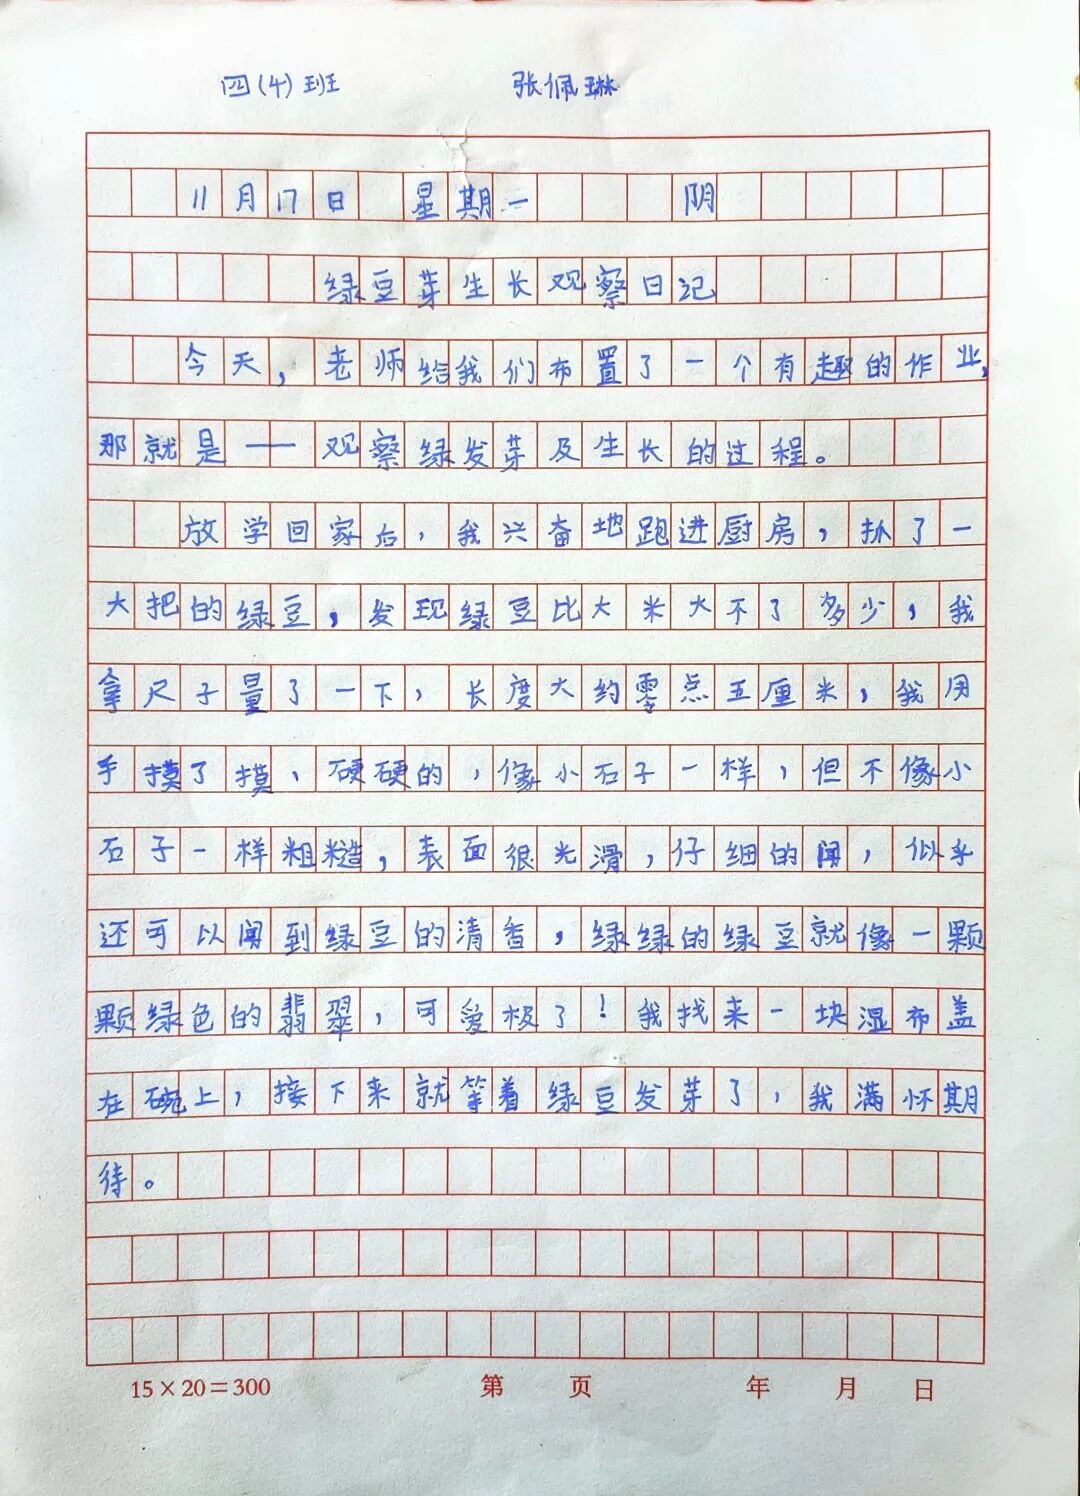 四（4）班 张佩琳
11月17日 星期一 阴
绿豆芽生长观察日记
今天，老师给我们布置了一个有趣的作业，
那就是——观察绿发芽及生长的过程。
放学回家后，我兴奋地跑进厨房，抓了一
大把的绿豆，发现绿豆比大米大不了多少，我
拿尺子量了一下，长度大约零点五厘米，我用
手摸了摸，硬硬的，像小石子一样，但不像小
石子一样粗糙，表面很光滑，仔细的闻，似乎
还可以闻到绿豆的清香，绿绿的绿豆就像一颗
颗绿色的翡翠，可爱极了！我找来一块湿布盖
在碗上，接下来就等着绿豆发芽了，我满怀期
待。
15×20=300 第 页 年 月 日